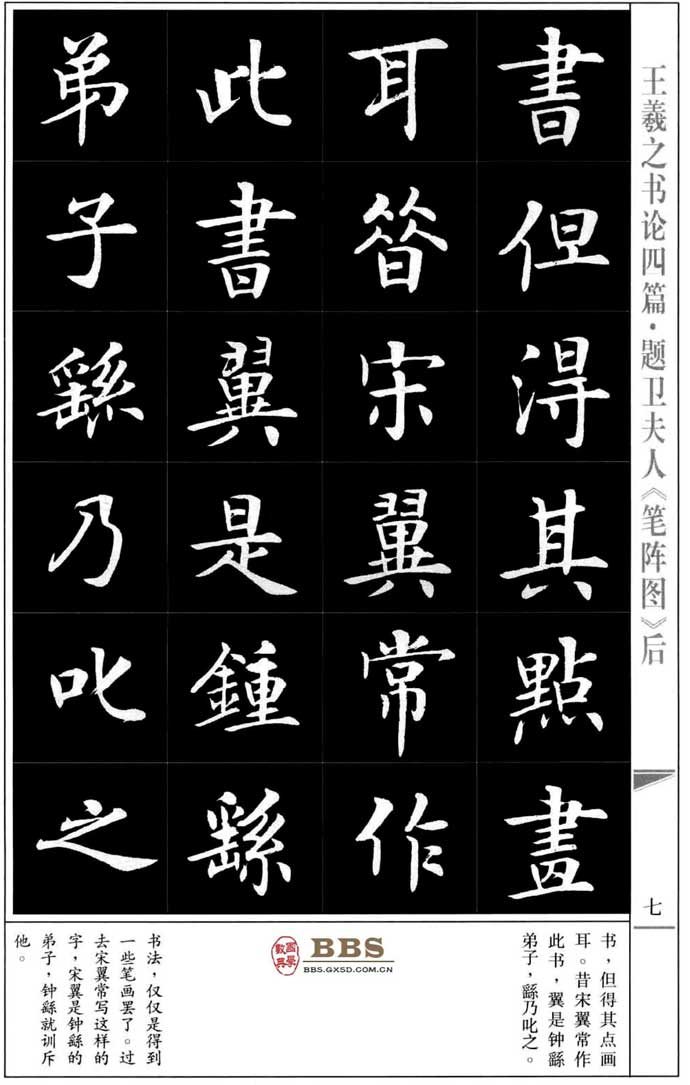 王羲之书论四篇·题卫夫人《笔阵图》后
七
書但得其點畫
耳昝宋翼常作
此書翼是鍾繇
弟子繇乃叱之
书，但得其点画
耳。昔宋翼常作
此书，翼是钟繇
弟子，繇乃叱之。
BBS
BBS.GXSD.COM.CN
书法，仅仅是得到
一些笔画罢了。过
去宋翼常写这样的
字，宋翼是钟繇的
弟子，钟繇就训斥
他。